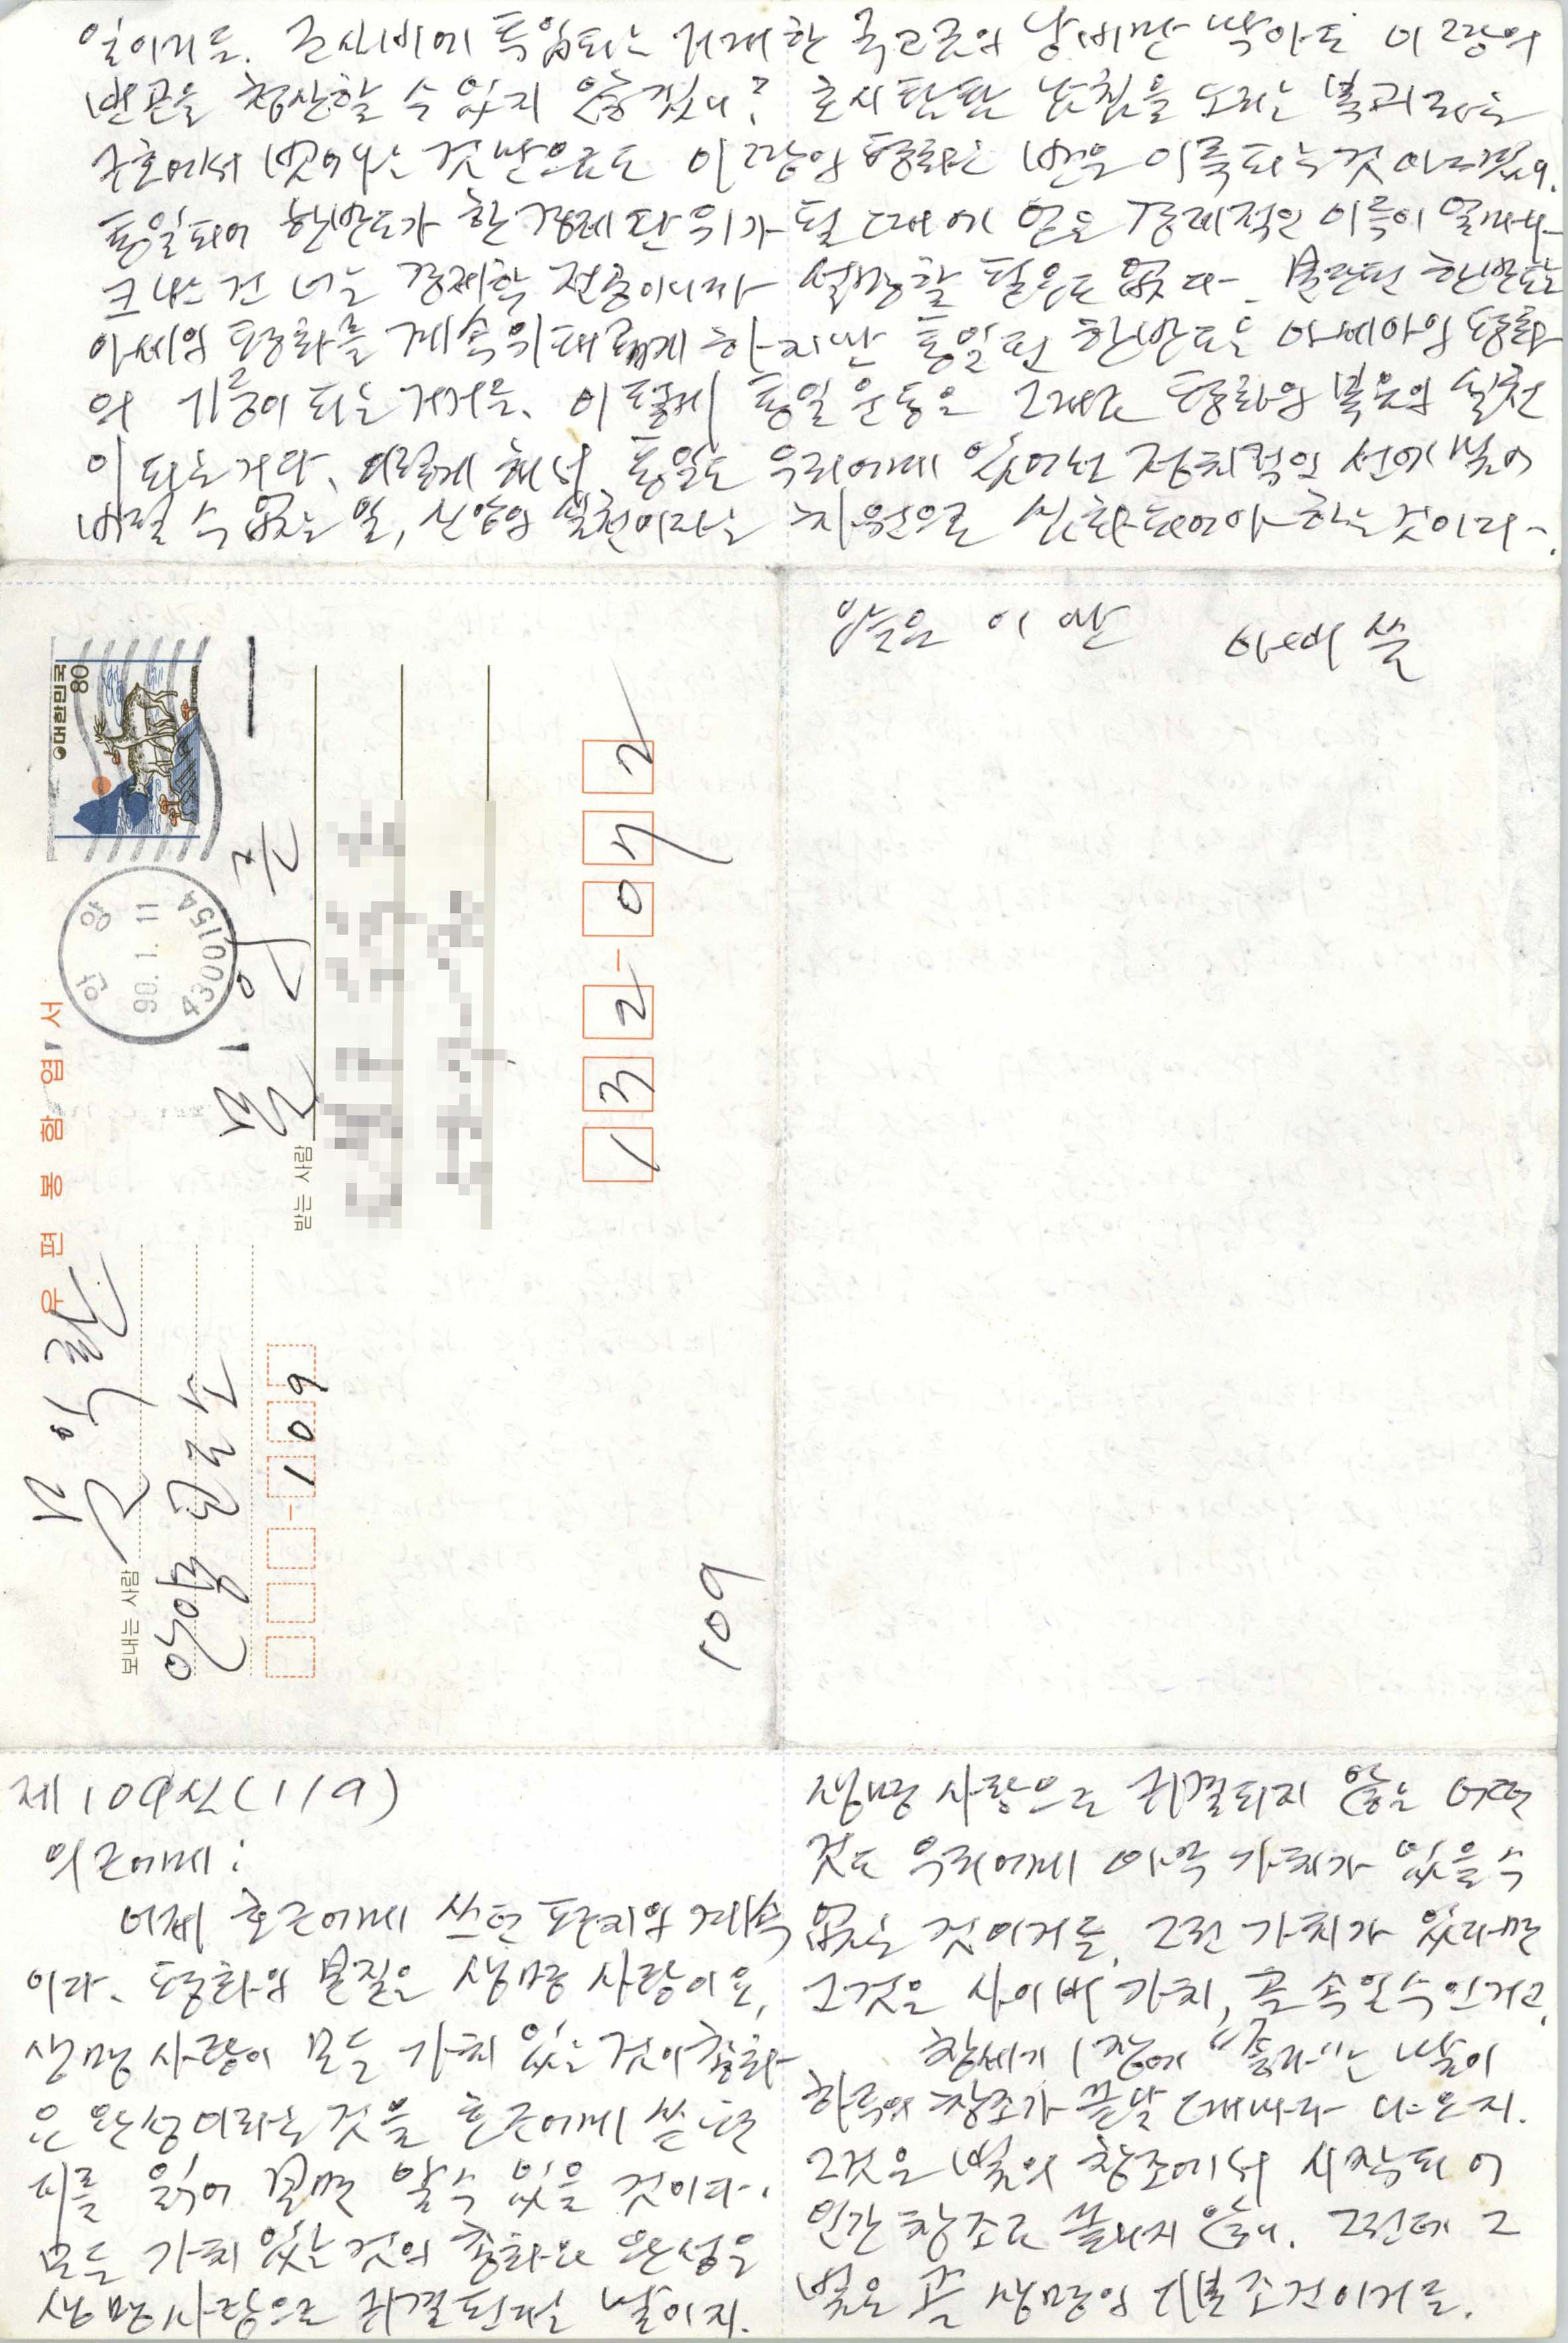 일이거든. 군사비에 투입되는 거대한 국고금의 낭비만 막아도 이 땅의
빈곤을 청산할 수 있지 않겠니? 호시탐탐 남침을 노리는 북괴라는
구호에서 벗어나는 것만으로도 이 땅의 평화는 반은 이룩되는 것 아니겠니.
통일되어 한반도가 한 경제단위가 될 때에 얻을 경제적인 이득이 얼마나
크냐는 건 너는 경제학 전공이니까 설명할 필요도 없다. 분단된 한반도는
아세아 평화를 계속 위태롭게 하지만 통일된 한반도는 아세아의 평화
의 기둥이 되는 거거든. 이렇게 통일운동은 그대로 평화의 복음의 실천
이 되는 거다. 이렇게 해서 통일도 우리에게 있어선 정치적인 선에 남아
버릴 수 없는 일, 신앙의 실천이라는 차원으로 심화되어야 하는 것이다.
오늘은 이만 아버 씀
대한민국
80
KOREA
안양
90.1.11
4300154
우편봉함엽서
보내는 사람
문익환
안양교도소
109
받는 사람
문의근
132-072
109
제109신(1/9)
의근에게:
어제 호근에게 쓰던 편지의 계속
이다. 평화의 본질은 생명 사랑이요,
생명 사랑이 모든 가치 있는 것의 총화
요 완성이라는 것을 호근에게 쓴 편
지를 읽어 보면 알 수 있을 것이다.
모든 가치 있는 것의 총화요 완성은
생명사랑으로 귀결된다는 말이지.
생명 사랑으로 귀결되지 않는 어떤
것도 우리에게 아무 가치가 있을 수
없는 것이거든. 그런 가치가 있다면
그것은 사이비 가치, 곧 속임수인 거고.
창세기 1장에 "좋다"는 말이
하루의 창조가 끝날 때마다 나오지.
그것은 빛의 창조에서 시작되어
인간 창조로 끝나지 않니. 그런데 그
빛은 곧 생명의 기본조건이거든.